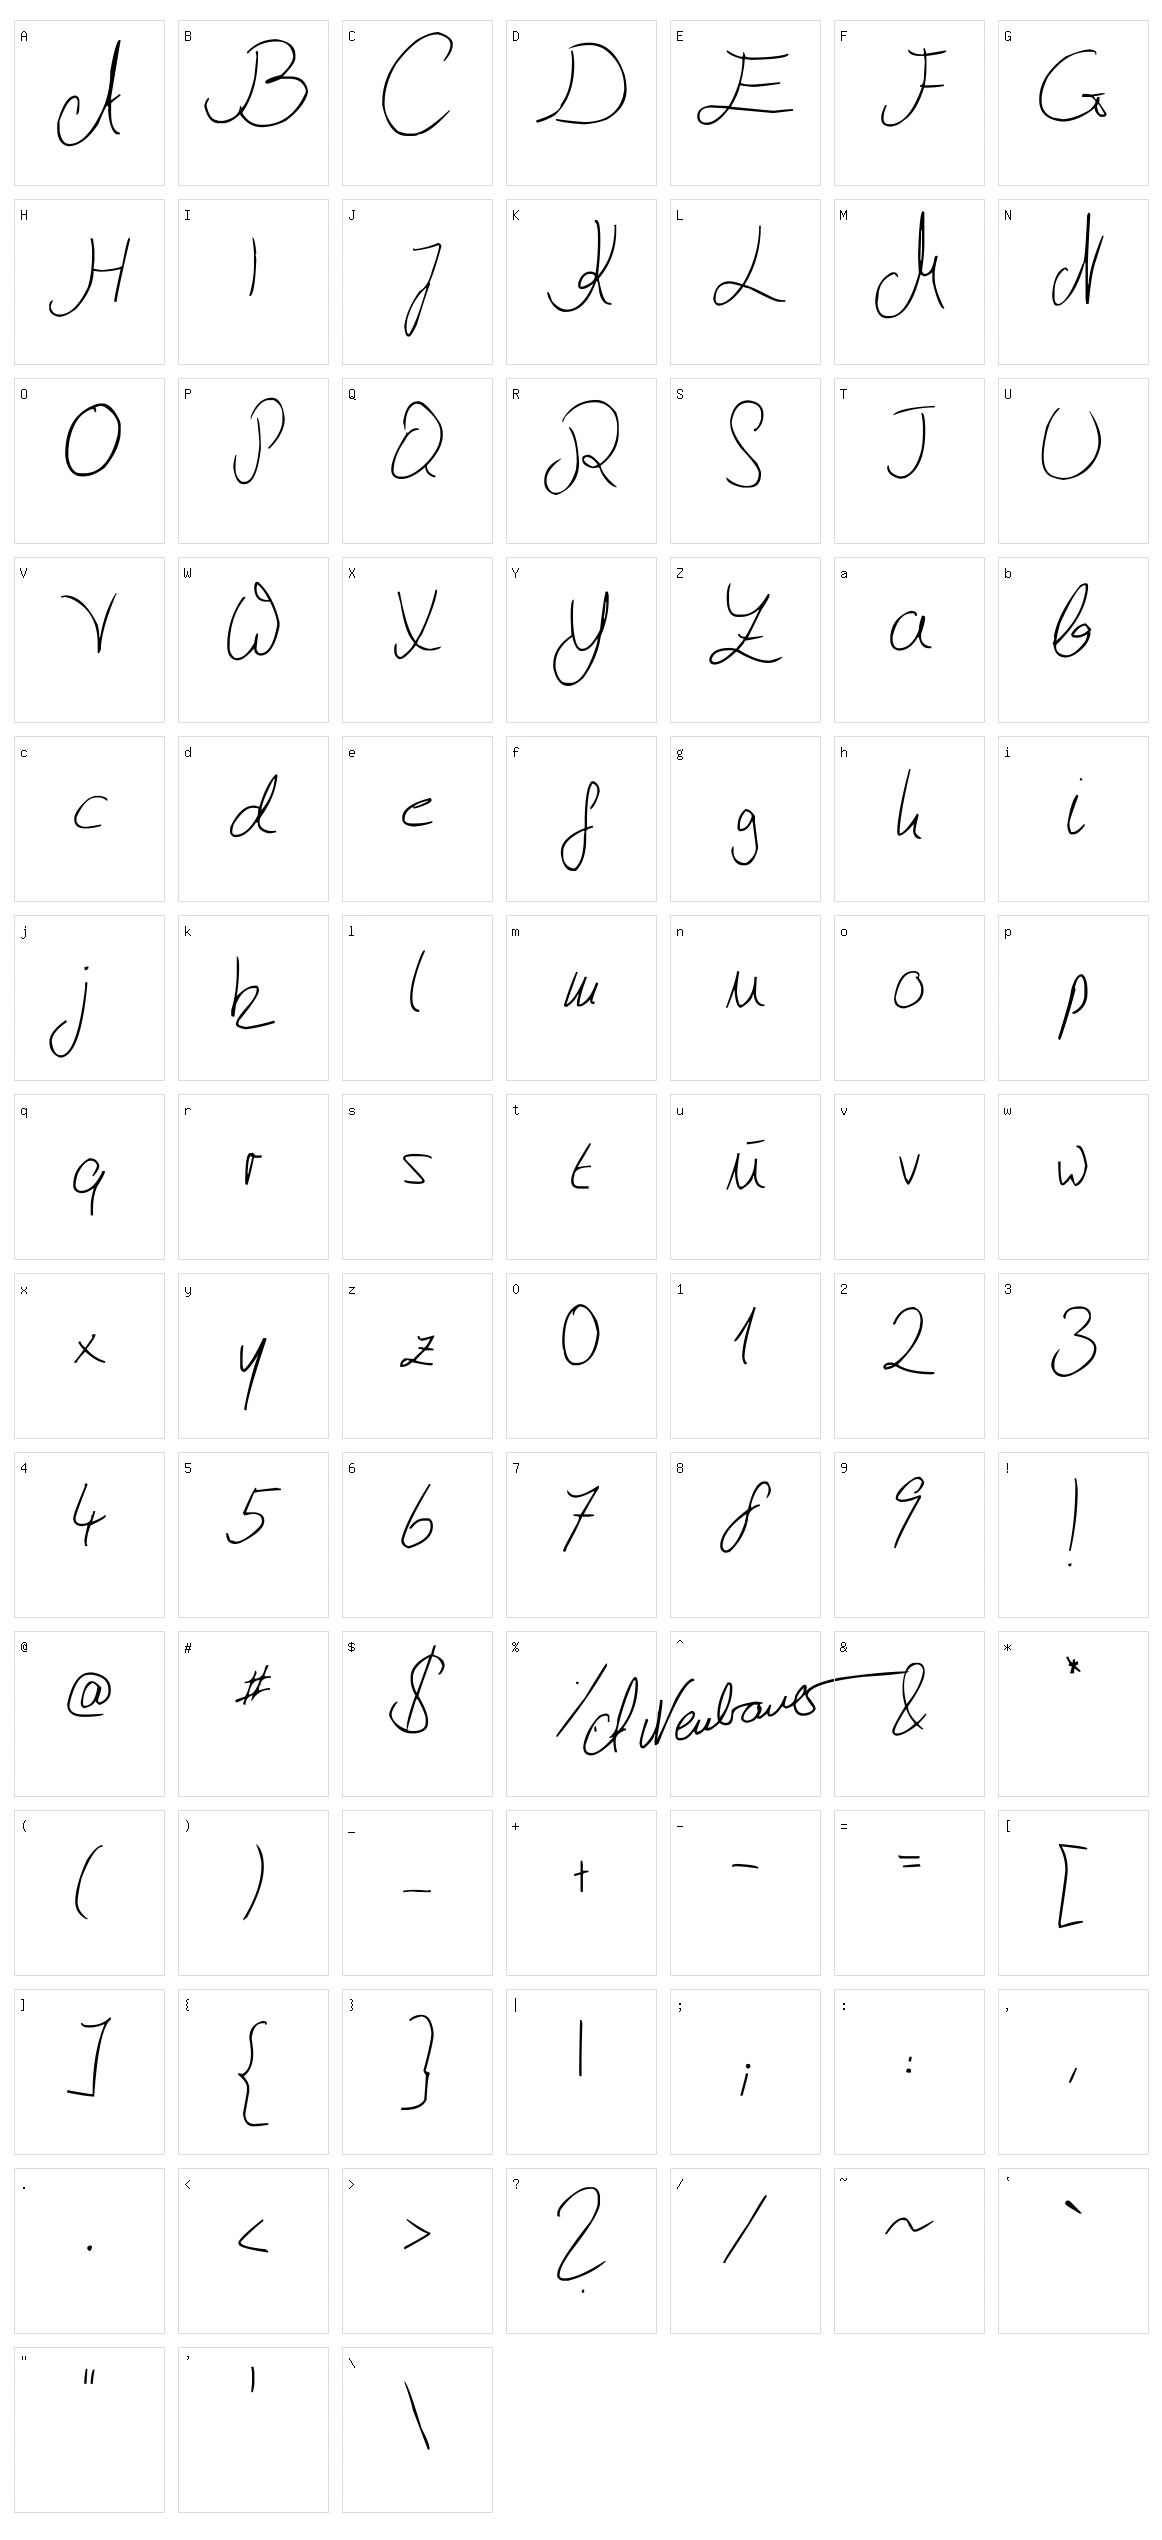 A B C D E F G
A B C D E F G
H I J K L M N
H I J K L M N
O P Q R S T U
O P Q R S T U
V W X Y Z a b
V W X Y Z a b
c d e f g h i
c d e f g h i
j k l m n o p
j k l m n o p
q r s t u v w
q r s t ū v w
x y z 0 1 2 3
x y z 0 1 2 3
4 5 6 7 8 9 !
4 5 6 7 8 9 !
@ # $ % ^ & *
@ # $ % A Neubauer & *
( ) _ + - = [
( ) _ + - = [
] { } | ; : ,
] { } | ; : ,
. < > ? / ~ `
. < > ? / ~ `
" ' \
" ' \